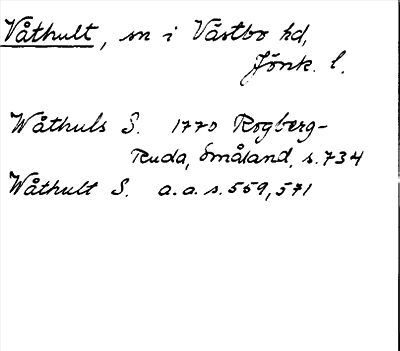 Våthult, sn i Västbo hd,
Jönk. l.
Wåthuls S. 1770 Rogberg-
Ruda, Småland, s. 734
Wåthult S. a.a. s. 559, 571